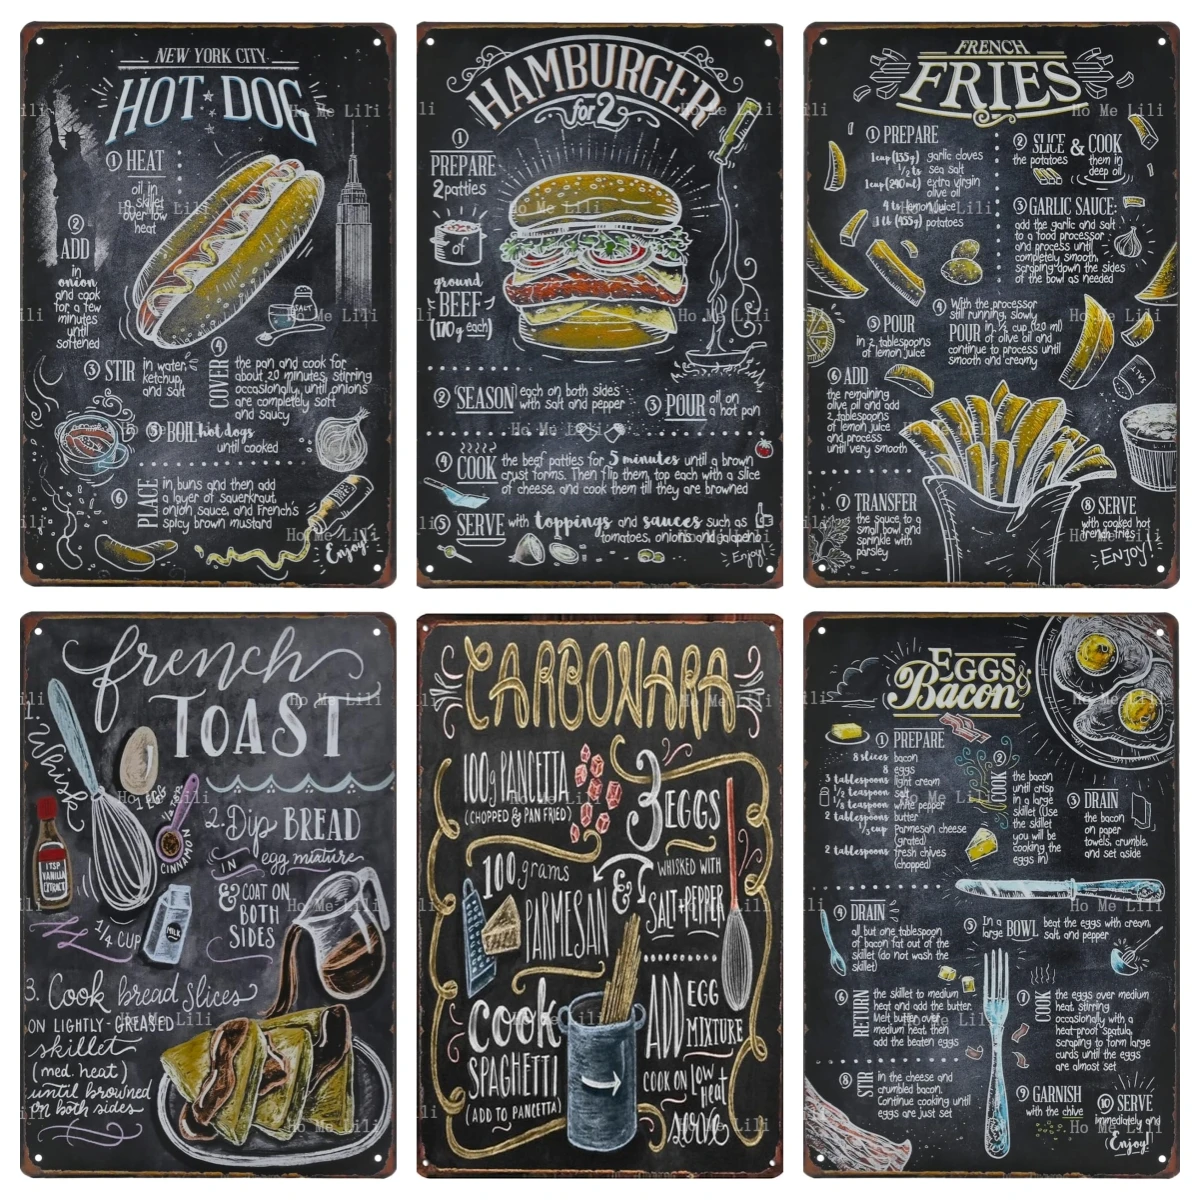 NEW YORK CITY
HOT DOG
1 HEAT
oil in
skillet
over low
heat
2
ADD
in
onion
and cook
for a few
minutes
until
softened
3 STIR
in water,
ketchup,
and salt
SALT
4
COVER
the pan and cook for
about 20 minutes, stirring
occasionally, until onions
are completely soft
and saucy
5 BOIL hot dogs
until cooked
6
PLACE
in buns and then add
a layer of sauerkraut,
onion sauce, and French's
spicy brown mustard
Enjoy!
HAMBURGER
for 2
1
PREPARE
2 patties
of
ground
BEEF
(170g each)
2 SEASON each on both sides
with salt and pepper
3 POUR oil on
a hot pan
4 COOK
the beef patties for 5 minutes until a brown
crust forms. Then flip them, top each with a slice
of cheese, and cook them till they are browned
5 SERVE with toppings and sauces such as
tomatoes, onions and jalapeno
Enjoy!
FRENCH
FRIES
1 PREPARE
1 cup (135g) garlic cloves
1/2 ts sea salt
1 cup (240ml) extra virgin
olive oil
4 ts lemon juice
1 lb (455g) potatoes
2 SLICE & COOK
the potatoes
them in
deep oil
3 GARLIC SAUCE:
add the garlic and salt
to a food processor
and process until
completely smooth,
scraping down the sides
of the bowl as needed
4 With the processor
still running, slowly
POUR in 1/2 cup (120 ml)
of olive oil and
continue to process until
smooth and creamy
5 POUR
in 2 tablespoons
of lemon juice
SALT
6 ADD
the remaining
olive oil and add
2 tablespoons
of lemon juice
and process
until very smooth
7 TRANSFER
the sauce to a
small bowl and
sprinkle with
parsley
8 SERVE
with cooked hot
french fries
ENJOY!
french
TOAST
1. Whisk
EGG
1 tsp
CINNAMON
1 TSP
VANILLA
EXTRACT
1/4 CUP
MILK
2. Dip BREAD
IN egg mixture
& COAT ON
BOTH
SIDES
3. Cook bread slices
ON LIGHTLY-GREASED
skillet
(med. heat)
until browned
on both sides
CARBONARA
100g PANCETTA
(CHOPPED & PAN FRIED)
3 EGGS
WHISKED WITH
& SALT+PEPPER
100 grams
PARMESAN
COOK
SPAGHETTI
(ADD TO PANCETTA)
ADD EGG
MIXTURE
COOK ON low
heat
serve
EGGS &
Bacon
1 PREPARE
8 slices bacon
8 eggs
3 tablespoons light cream
1/2 teaspoon salt
1/8 teaspoon white pepper
2 tablespoons butter
1/3 cup Parmesan cheese
(grated)
2 tablespoons fresh chives
(chopped)
2
COOK
the bacon
until crisp
in a large
skillet (Use
the skillet
you will be
cooking the
eggs in)
3 DRAIN
the bacon
on paper
towels, crumble,
and set aside
4 DRAIN
all but one tablespoon
of bacon fat out of the
skillet (do not wash the
skillet)
5 In a
large BOWL beat the eggs with cream,
salt, and pepper
6
RETURN
the skillet to medium
heat and add the butter.
Melt butter over
medium heat then
add the beaten eggs
7
COOK
the eggs over medium
heat, stirring
occasionally with a
heat-proof spatula,
scraping to form large
curds until the eggs
are almost set
8
STIR
in the cheese and
crumbled bacon.
Continue cooking until
eggs are just set
9 GARNISH
with the chive
10 SERVE
immediately and
(Enjoy!)
Ho Me Lili